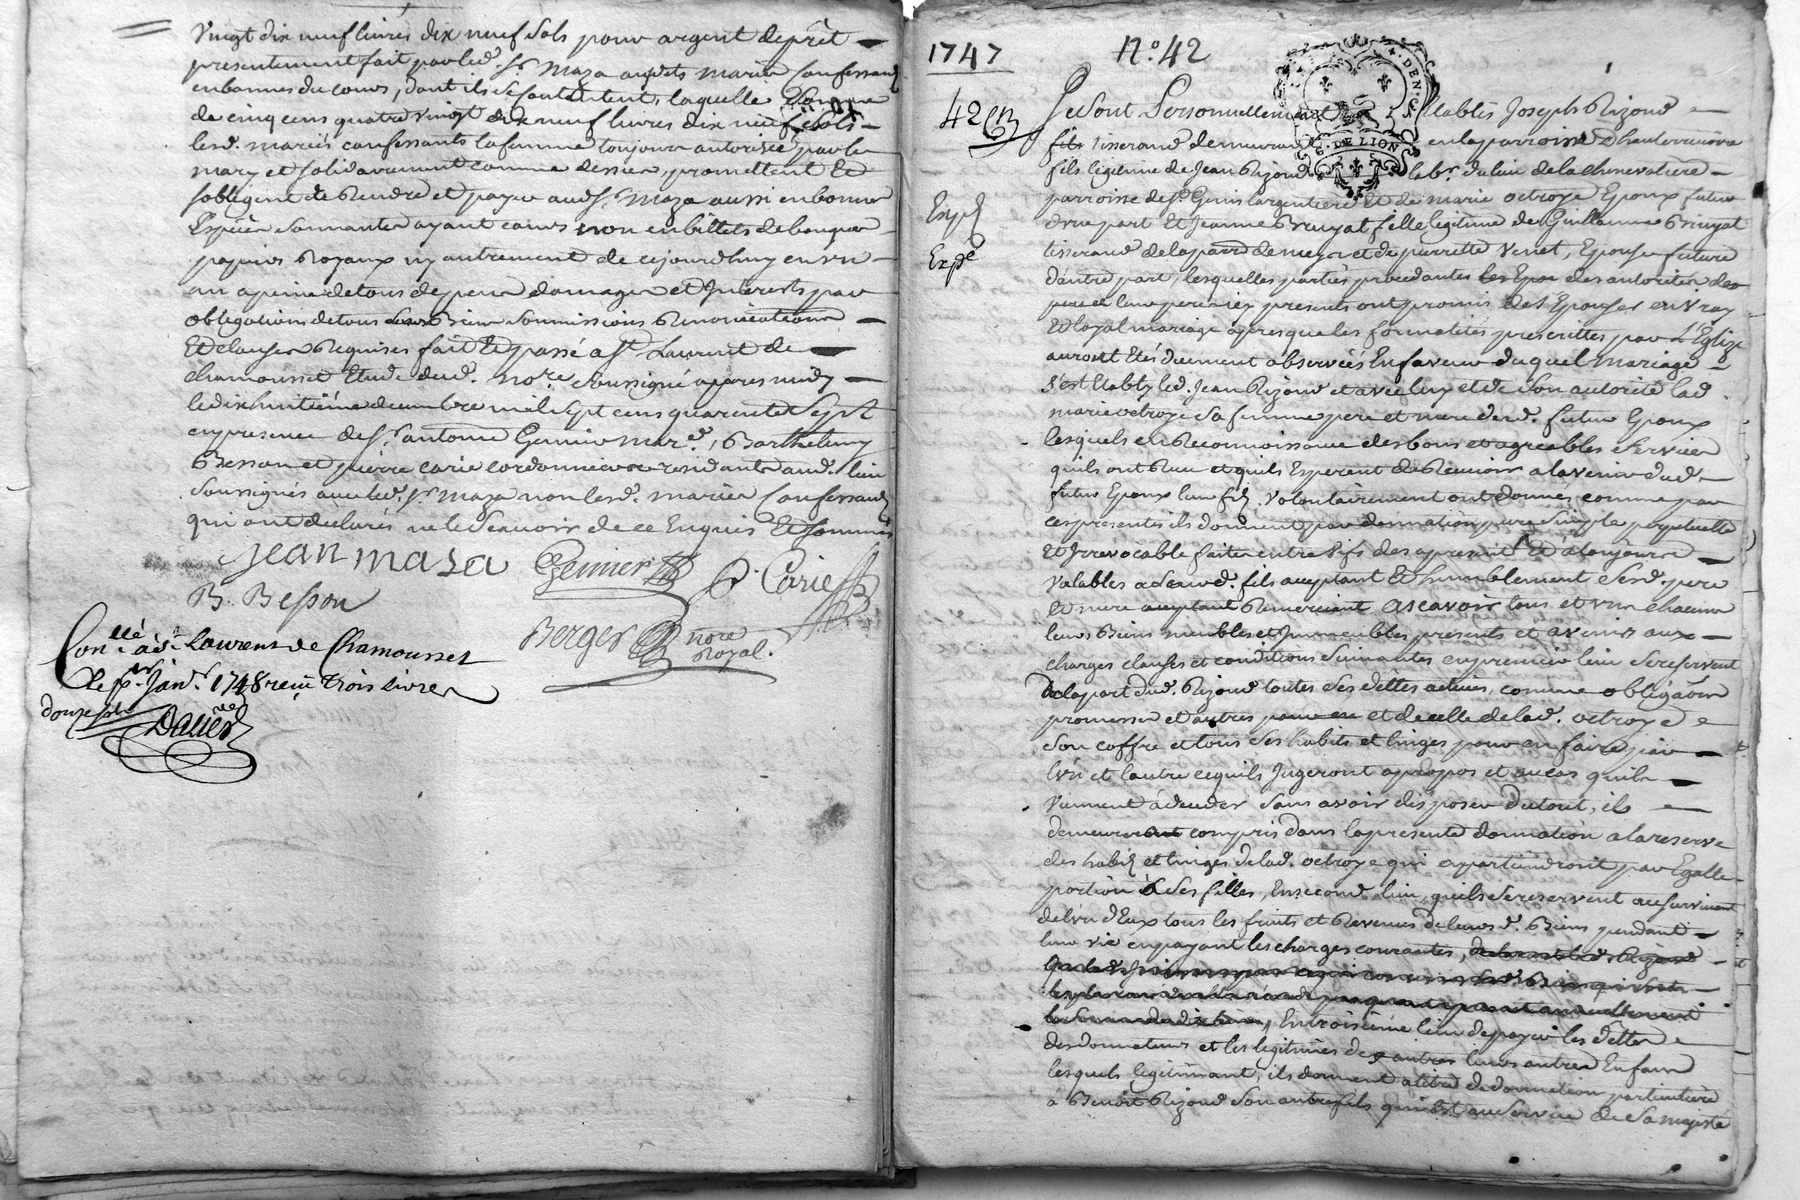 Vingt dix neuf livres dix neuf sols pour argent deprêt
presentement fait par led. Sr. Maza auxdits mariés Confessants
en bonnes du cours, dont ils se contentent, laquelle somme
de cinq cens quatre vingt dix neuf livres dix neuf sols
lesd. mariés confessants la femme toujours autorisée par le
mary et solidairement comme dessus, promettent Et
sobligent de Rendre et payer aud. Sr. Maza aussi en bonnes
Espèces sonnantes ayant cours non en billets de banque
papiers Royaux ny autrement de cejourdhuy en un
an a peine de tous depens domages et Interests par
obligations de tous leurs Biens soumissions Renonciations
Et clauses Requises fait Et passé a St. Laurent de
Chamousset Etude dud. nore. soussigné apres midy
le dix huitième decembre mil sept cens quarente Sept
en presence de Sr. antoine Genier mard., Barthelemy
Besson et pierre carie cordonnier residants aud. lieu
soussignés avec led. Sr maza non lesd. mariés Confessants
qui ont déclarés ne le scavoir de ce Enquis Et sommés
jean masa Genier P. Carie
B. Besson
Berger nore Royal.
Conllé à St. Laurens de Chamousset
le pr. Janr. 1748 reçu trois livres
douze sols Dalier
1747 N.o 42
42 Je Sont Personnellement Etablis Joseph Rizoud
fils tisserand demeurant en la parroisse Dhauterivoire
fils legitime de Jean Rizoud labr. du lieu de la chenevatiere
parroisse de St. Genis largentiere Et de marie octroye Epoux futur
Expé
d'une part Et Jeanne Bruyat fille legitime de Guillaume Bruyat
tisserand de la parr. de meys et de pierrette Venet, Epouse future
Expé
d'autre part, lesquelles parties procedantes des autorités de
leurs peres icy presents ont promis de s'Epouser en vray
Et loyal mariage apres que les formalités prescrittes par l'Eglise
auront Etés duement observées En faveur duquel mariage
s'est Etably led. Jean Rizoud et avec luy et de son autorité lad.
marie octroye sa femme pere et mere dud. futur Epoux
lesquels en Reconnoissance des bons et agreables services
quils ont Recu et quils Esperent de Recevoir a lavenir dud.
futur Epoux leur fils, volontairement ont donnes comme par
ces presentes ils donnent par donnation pure simple perpetuelle
Et Irrevocable faite entre vifs des apresent Et a toujours
valables a leurd. fils acceptant Et humblement sesd. pere
Et mere Remerciant ascavoir tous et uns chacuns
leurs Biens meubles et Immeubles presents et avenirs aux
charges clauses et conditions suivantes en premier lieu se reservent
de la part dud. Rizoud toutes ses dettes actives, comme obligaōns
promesses et autres et de celle de lad. octroye
son coffre et tous ses habits et linges pour en faire par
l'un et l'autre ce quils Jugeront apropos et au cas quils
vinnent à deceder sans avoir disposer du tout, ils
demeureront compris dans la presente donnation a la reserve
des habits et linges de lad. octroye qui appartiendront par Egalle
portion à ses filles, En second lieu, quils se reservent au survivant
de l'un d'Eux tous les fruits et Revenus de leursd. Biens pendant
leur vie en payant les charges courantes,
En troisième lieu de payer les dettes
des donnateurs et les legitimes de leurs autres Enfans
lesquels legitimant, ils donnent a titre de donnation particuliere
à Benoit Rizoud son autre fils qui Est au service de sa majesté